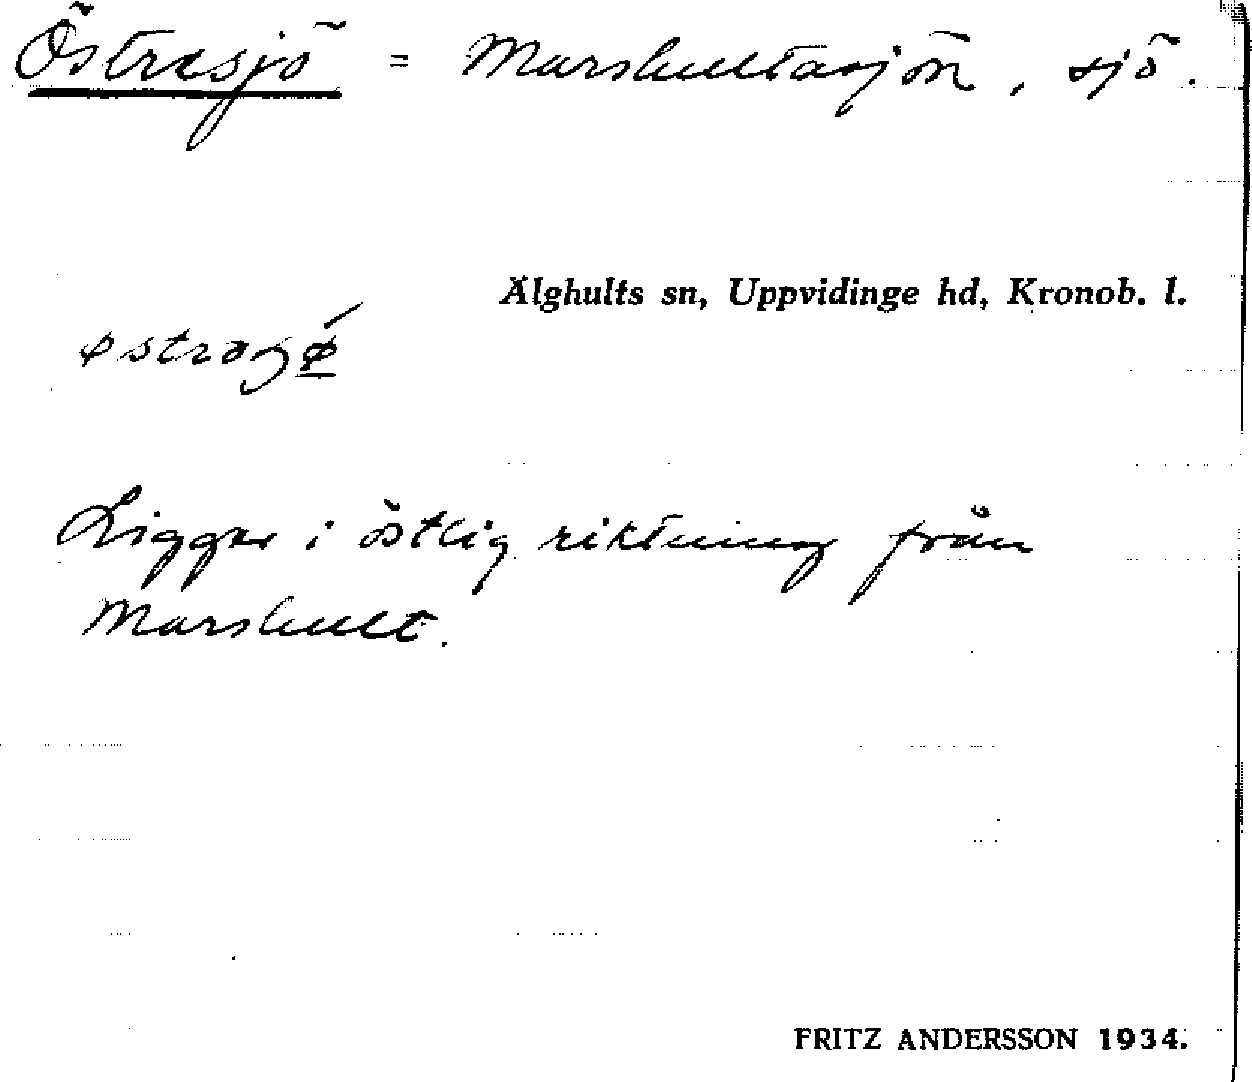 Östresjö = Marshultasjön, sjö.
Älghults sn, Uppvidinge hd, Kronob. l.
Ligger i östlig riktning från
Marshult.
FRITZ ANDERSSON 1934.